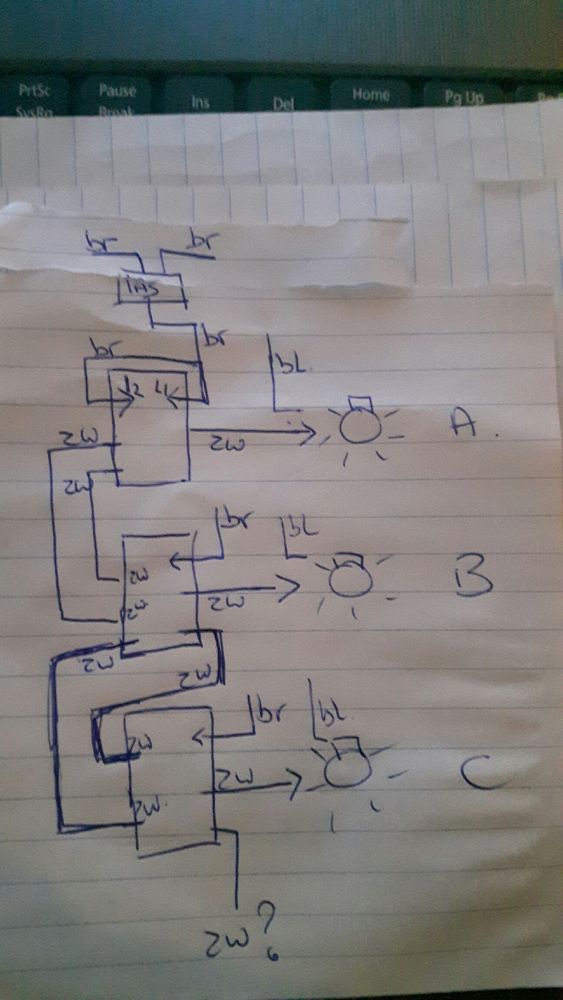 PrtSc
SysRq
Pause
Break
Ins
Del
Home
Pg Up
br
br
br
br
L2
L1
bL
zw
zw
zw
A.
br
bL
zw
zw
zw
B
zw
zw
br
bL
zw
zw
zw.
C
zw?